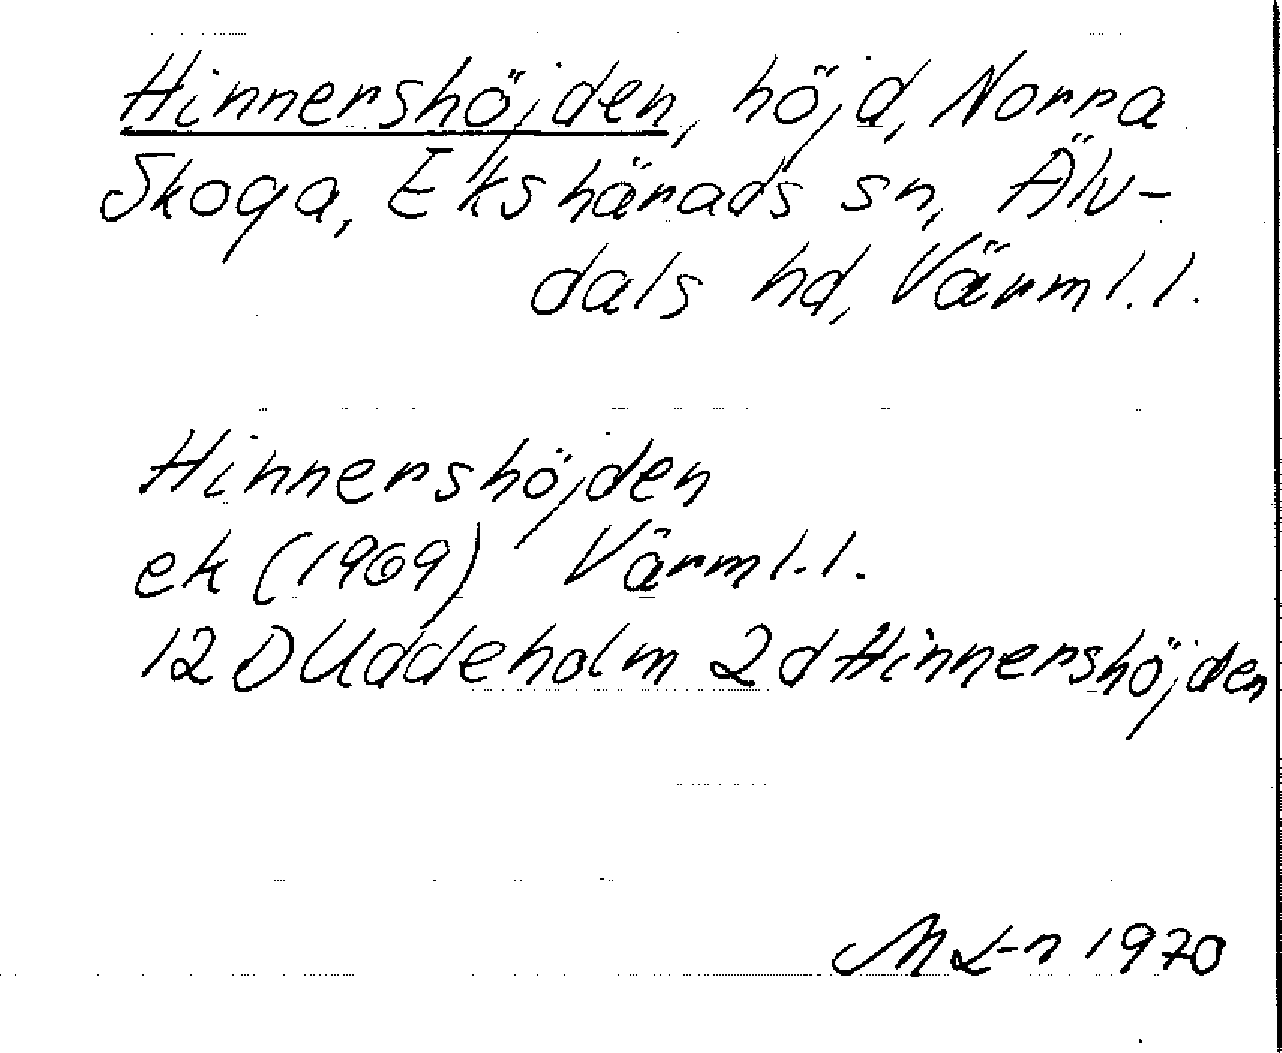 Hinnershöjden, höjd, Norra
Skoga, Ekshärads sn, Älv-
dals hd, Värml.l.
Hinnershöjden
ek (1969) Värml.l.
12 D Uddeholm 2d Hinnershöjden
M L-n 1970